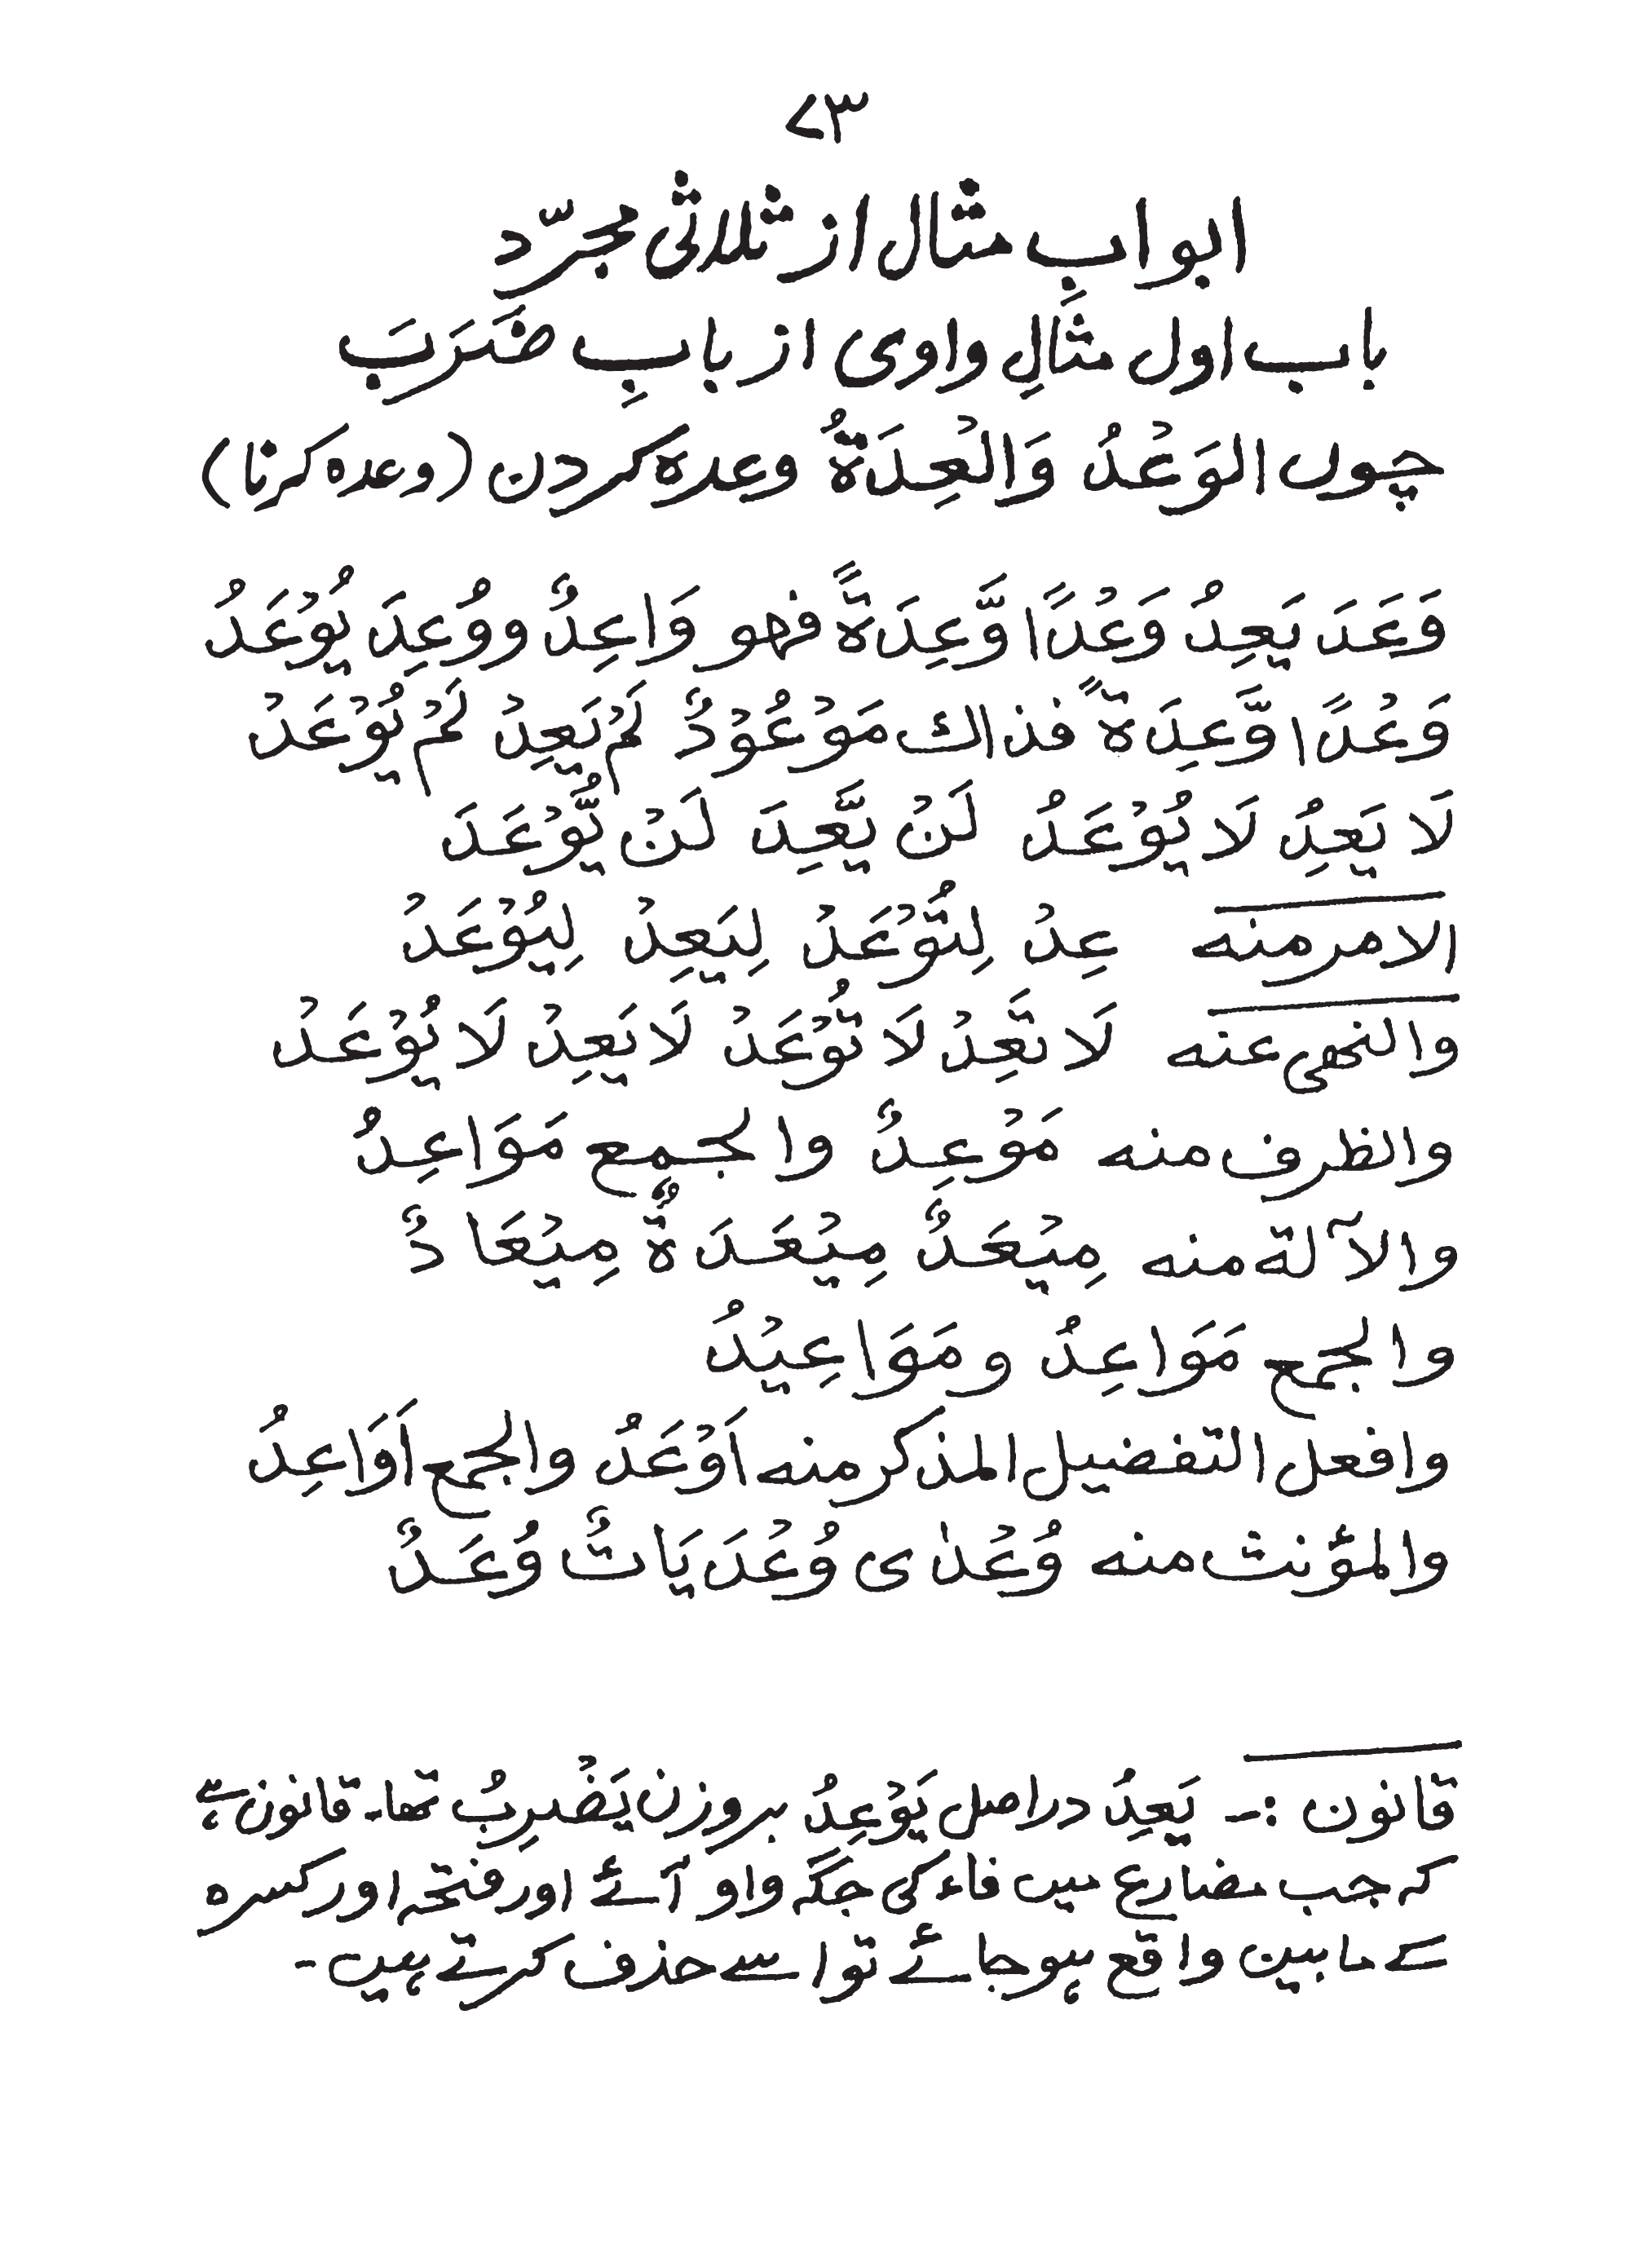 ۷۳
ابوابِ مثال از ثلاثی مجرّد
باب اول مثالِ واوی از بابِ ضَرَبَ
چوں الوَعْدُ وَالْعِدَةُ وعدہ کردن (وعدہ کرنا)
وَعَدَ يَعِدُ وَعْدًا وَّعِدَةً فهو وَاعِدٌ ووُعِدَ يُوْعَدُ
وَعْدًا وَّعِدَةً فذاك مَوْعُوْدٌ لَمْ يَعِدْ لَمْ يُوْعَدْ
لَا يَعِدُ لَا يُوْعَدُ لَنْ يَّعِدَ لَنْ يُّوْعَدَ
الامر منه عِدْ لِتُوْعَدْ لِيَعِدْ لِيُوْعَدْ
والنهى عنه لَا تَعِدْ لَا تُوْعَدْ لَا يَعِدْ لَا يُوْعَدْ
والظرف منه مَوْعِدٌ والجمع مَوَاعِدُ
والآلة منه مِيْعَدٌ مِيْعَدَةٌ مِيْعَادٌ
والجمع مَوَاعِدُ و مَوَاعِيْدُ
وافعل التفضيل المذكر منه اَوْعَدُ والجمع اَوَاعِدُ
والمؤنث منه وُعْدٰى وُعْدَيَاتٌ وُعَدٌ
قانون :- يَعِدُ دراصل يَوْعِدُ بروزن يَضْرِبُ تھا۔ قانون ہے
کہ جب مضارع میں فاء کی جگہ واو آئے اور فتحہ اور کسرہ
کے مابین واقع ہو جائے تو اسے حذف کرتے ہیں۔